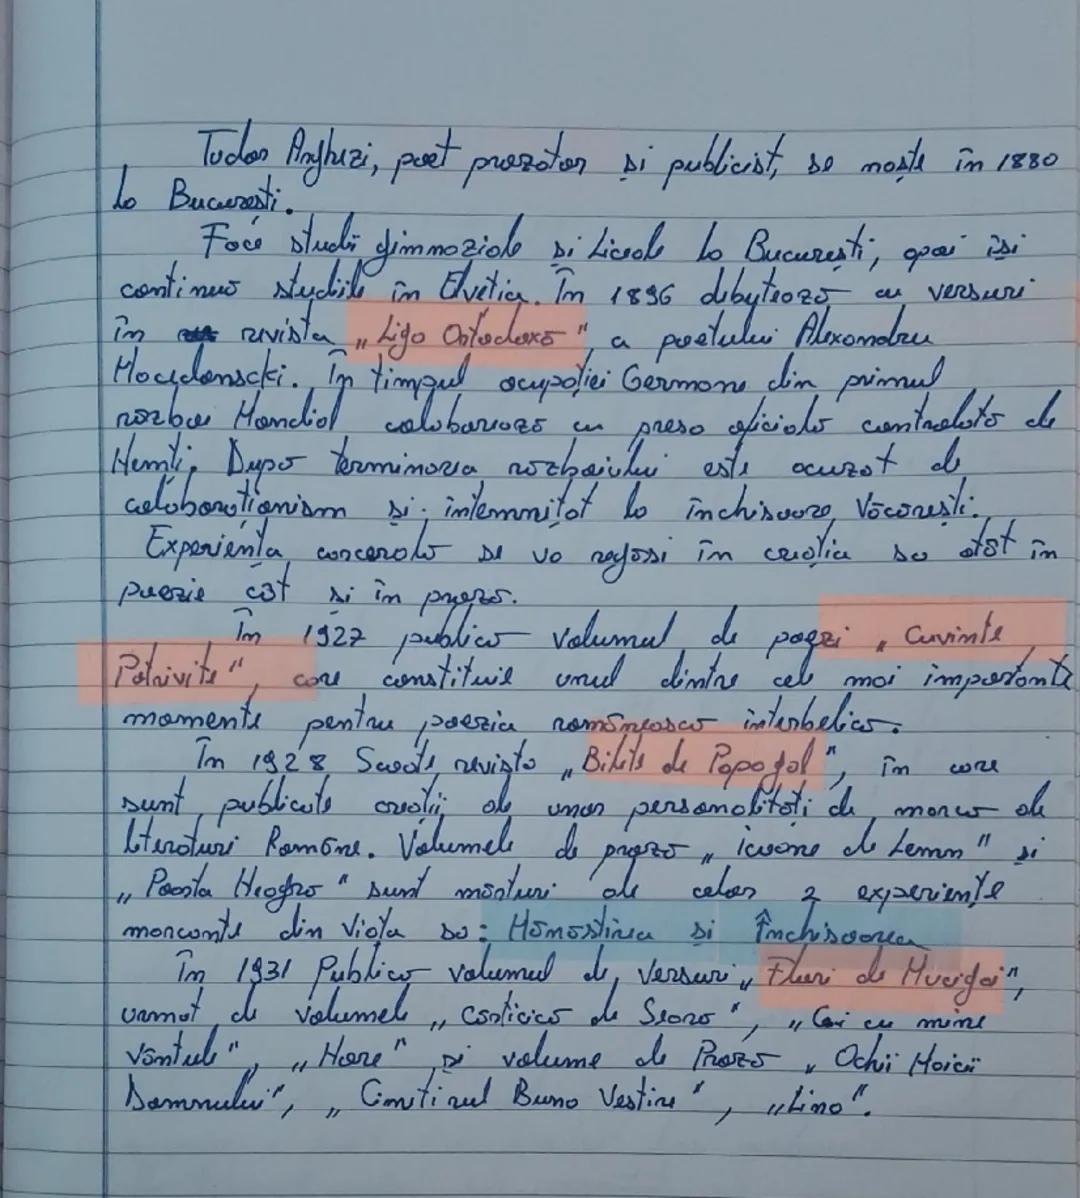 Tudor Arghezi, poet prozator și publicist, se naște în 1880
la București.
Face studii gimnaziale și Liceale la București, apoi își
continuă studiile în Elveția. În 1896 debutează cu versuri
în revista „Liga Ortodoxă", a poetului Alexandru
Macedonscki. În timpul ocupației Germane din primul
război Mondial colaborează cu presa oficială controlată de
Nemți. După terminarea războiului este acuzat de
colaboraționism și întemnițat la închisoarea Văcărești.
Experiența carcerală se va regăsi în creația sa atât în
poezie cât și în proză.
În 1927 publică volumul de poezii „Cuvinte
Potrivite", care constituie unul dintre cele mai importante
momente pentru poezia românească interbelică.
În 1928 Scoate revista „Bilete de Papagal", în care
sunt publicate creații ale unor personalități de marcă ale
literaturi Române. Volumele de proză „icoane de Lemn" și
„Poarta Neagră" sunt mărturi ale celor 2 experiențe
marcante din Viața sa: Mânăstirea și Închisoarea
În 1931 Publică volumul de Versuri „Fluri de Mucigai",
urmat de volumele „Cărticică de Seară", „Cai cu mine
Vântule", „Hore" și volume de Proză „Ochii Maicii
Domnului", „Cimitirul Buna Vestire", „Lina".